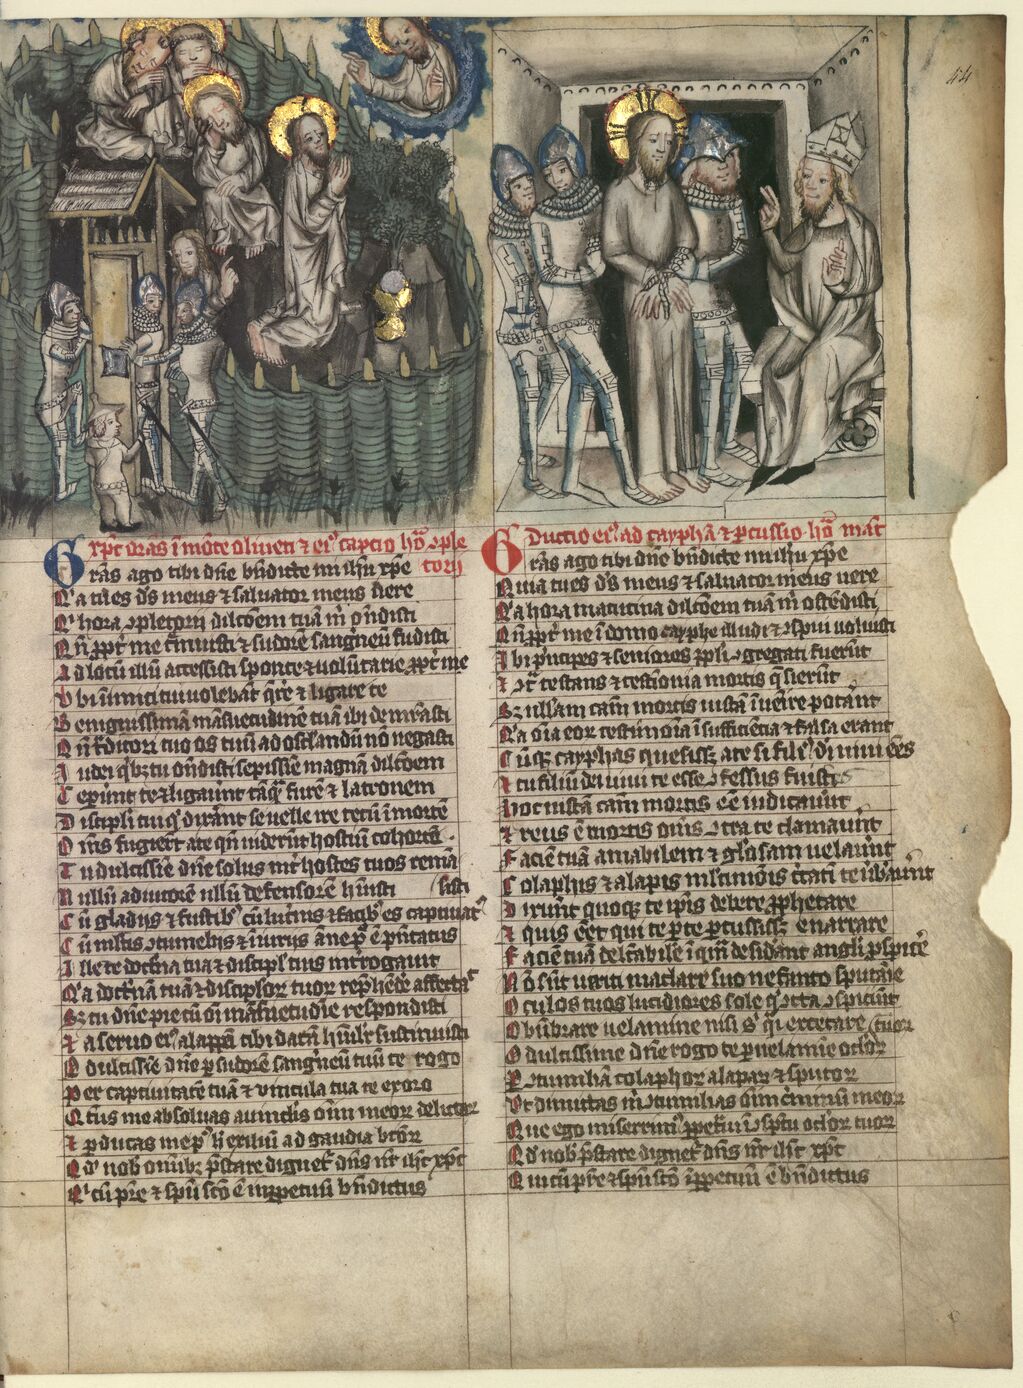 44
Xp̄c orās ī mōte oliueti ⁊ ei᷒ captio hō ɔple
torij
Grās ago tibi dn̄e bn̄dicte mi ih̄u xp̄e
Q'a tu es d̄s meus ⁊ saluator meus uere
Q' hora ɔpletorij dilc̄oem tuā m̄ oñdisti
Qn̄ ꝓpt̄ me t̄muisti ⁊ sudorē sangneū fudisti
Ad locū illū accessisti sponte ⁊ volūtarie ꝓpt̄ me
Vbi inimici tui volebāt q̄re ⁊ ligare te
Benignissimā māsuetudinē tuā ibi demr̄asti
Qn̄ t̄ditori tuo os tuū ad osc̄landū nō negasti
Iudei qͥbz tu oñdisti sepissīe magnā dilc̄oem
Ceperūt te ⁊ ligauūt tāqͣ furē ⁊ latronem
Discipl̄i tui qͥ dixāt se uelle ire tecū ī mortē
Om̄s fugier̄t a te qn̄ uider̄t hostiū cohortē
Tu dulcissīe dn̄e solus int̄ hostes tuos remā
sisti
Nullū adiutorē ullū defensorē h̄uisti
Cū gladijs ⁊ fustib᷒ cū lucr̄nis ⁊ facib᷒ es captiuat᷒
Cū ml̄tis ɔtumelijs ⁊ iniurijs ān̄e pͥ ē p̄ntatus
Ille te doct̄na tua ⁊ discipl̄is tuis int̄rogauit
Q'a doct̄nā tuā ⁊ discipl̄or tuor rep̄hēde᷒ affectat᷒
Sz tu dn̄e pie cū oī māsuetudīe respondisti
Et a seruo ei᷒ alappā tibi datā hūilr̄ sustinuisti
O dulcissīe dn̄e p̱ sudorē sangn̄eū tuū te rogo
Per captiuitatē tuā ⁊ vincula tua te exoro
Qtin᷒ me absoluas a uinclis oīm meor delictor
Et p̱ducas me pͦ h̄ exiliū ad gaudia btōr
Qd' nob̄ omib᷒ p̄stare diget᷒ dn̄s nr̄ ih̄c xp̄c
Q' cū pr̄e ⁊ spū sc̄o ē inꝑpetuū bn̄dictus
Ductio ei᷒ ad caypħā ⁊ p̱cussio hō mat̄
Grās ago tibi dn̄e bn̄dicte mi ih̄u xp̄e
Quia tu es d̄s meus ⁊ saluator meus uere
Q'a hora matutina dilc̄oem tuā m̄ ostēdisti
Qn̄ ꝓpt̄ me ī domo cayphe illudi ⁊ ɔspui uoluisti
Ibi pͥncipes ⁊ seniores ppl̄i ɔgregati fuerūt
Et ɔt̄ te stans ⁊ testīonia mortis qͥsierūt
Sz ullam cām mortis iustā īuēire potāūt
Q'a oīa eor testimoīa īsufficiētia ⁊ falsa erant
Cūqꝫ cayphas quesissꝫ a te si fili᷒ di uiui eēs
Et tu filiū dei uiui te esse ɔfessus fuisti
Hoc iustā cām mortis eē iudicauūt
Et reus ē mortis om̄s ɔtra te clamauūt
Faciē tuā amabilem ⁊ gl̄osam uelauūt
Colaphis ⁊ alapis ml̄timōis t̄ctāti te ūbāuūt
Dixūt quoqꝫ te ipīs debere ꝓphetare
Et quis eēt qui te p̱te p̱cussissꝫ enarrare
Faciē tuā delc̄abilē ī qͣm desidāt angli ꝓspic̄e
Nō sūt ueriti maclare suo nefanto sputaīe
Oculos tuos lucidiores sole qͥ ōīa ɔspiciūt
Obūbrare uelamine nisi sͭ qͥ excecare
tuor
O dulcissime dn̄e rogo te p̱ uelamīe oc̄lor
P̱ ɔtumeliā colaphor alapar ⁊ sputor
Vt dimittas m̄ ɔtumelias oīm c̄minū meor
Que ego miserrim᷒ ꝓpet̄ui ī ɔspc̄u oc̄lor tuor
Qd' nob᷒ p̄stare diget᷒ dn̄s nr̄ ih̄c xp̄c
Qui cū pr̄e ⁊ spū sc̄o īꝑpetuū ē bn̄dictus